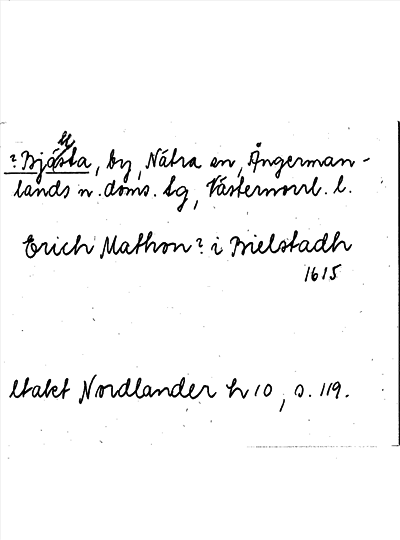 ? Bjästa, by, Nätra sn, Ångerman-
lands n. doms. tg, Västernorrl. l.
Erich Mathon? i Bielstadh
1615
Nordlander h 10, s. 119.